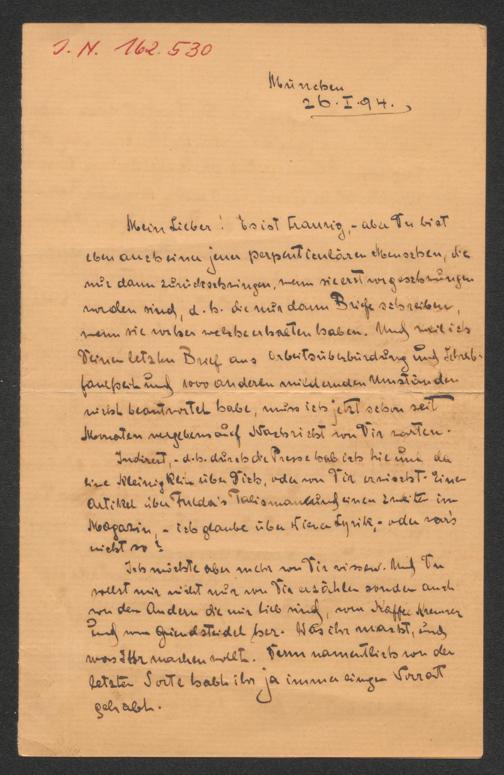 J. N. 162.530
München
26.I.94.
Mein Lieber! Es ist traurig, - aber Du bist
eben auch einer jener perpenticulären Menschen, die
nur dann zurückschwingen, wenn sie erst vorgeschwungen
worden sind, d. h. die nur dann Briefe schreiben,
wenn sie vorher welche erhalten haben. Und weil ich
Deinen letzten Brief aus Arbeitsüberbürdung und Schreib-
faulheit und 1000 anderen mildernden Umständen
nicht beantwortet habe, muss ich jetzt schon seit
Monaten vergebens auf Nachricht von Dir warten.
Indirect, - d. h. durch die Presse hab ich hie und da
eine Kleinigkeit über Dich, oder von Dir erwischt. Einen
Artikel über Fulda's Talisman und einen zweiten im
Magazin, - ich glaube über Wiener Lyrik, - oder war's
nicht so?
Ich möchte aber mehr von Dir wissen. Und Du
sollst mir nicht nur von Dir erzählen sondern auch
von den Andern die mir lieb sind, vom Kaffee Kremser
und vom Griensteidel her. Was ihr macht, und
was Ihr machen wollt. Denn namentlich von der
letzten Sorte habt ihr ja immer einigen Vorrat
gehabt.